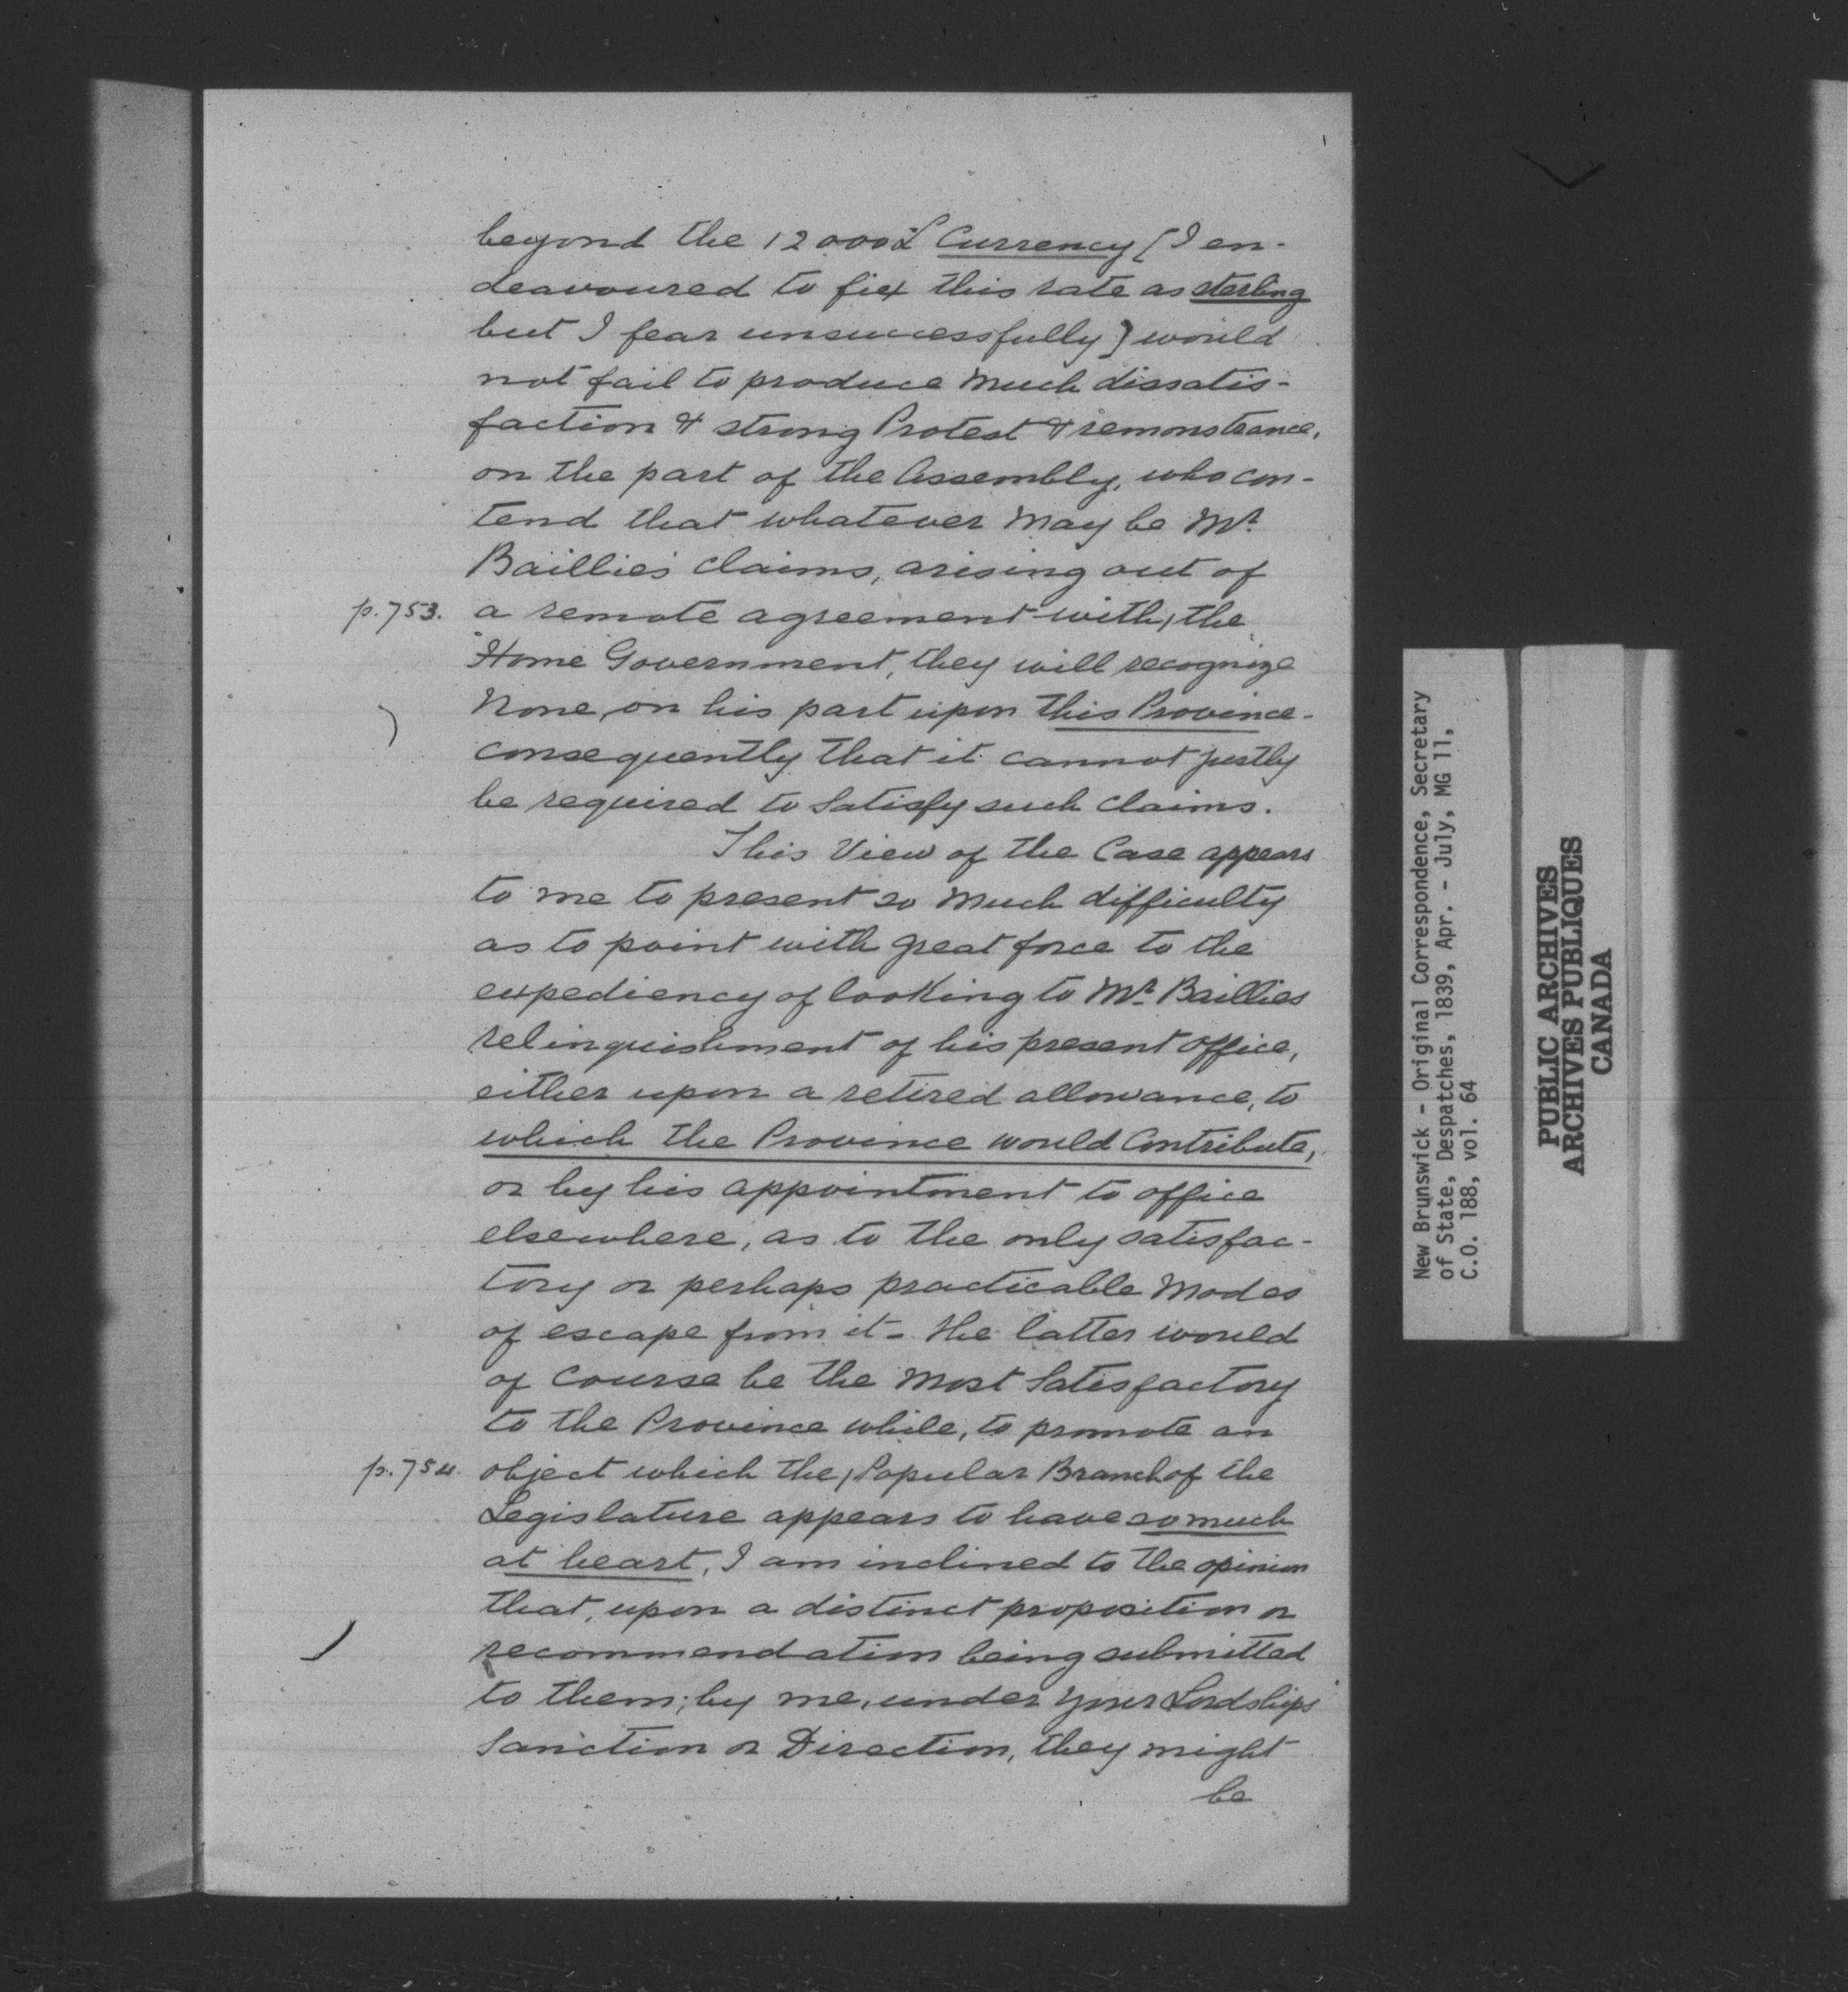 beyond the 12000£ Currency [I en-
deavoured to fix this rate as sterling
but I fear unsuccessfully] would
not fail to produce much dissatis-
faction & strong Protest & remonstrance,
on the part of the Assembly, who con-
tend that whatever may be Mr.
Baillie's claims, arising out of
p.753. a remote agreement with, the
Home Government, they will recognize
None, on his part upon this Province-
consequently that it cannot justly
be required to satisfy such claims.
This View of the Case appears
to me to present so much difficulty
as to point with great force to the
expediency of looking to Mr. Baillies
relinquishment of his present office,
either upon a retired allowance, to
which the Province would Contribute,
or by his appointment to office
elsewhere, as to the only satisfac-
tory or perhaps practicable modes
of escape from it- the latter would
of course be the most satisfactory
to the Province while, to promote an
p.754. object which the, Popular Branch of the
Legislature appears to have so much
at heart, I am inclined to the opinion
that, upon a distinct proposition or
recommendation being submitted
to them; by me, under your Lordships
Sanction or Direction, they might
be
New Brunswick - Original Correspondence, Secretary
of State, Despatches, 1839, Apr. - July, MG 11,
C.O. 188, vol. 64
PUBLIC ARCHIVES
ARCHIVES PUBLIQUES
CANADA